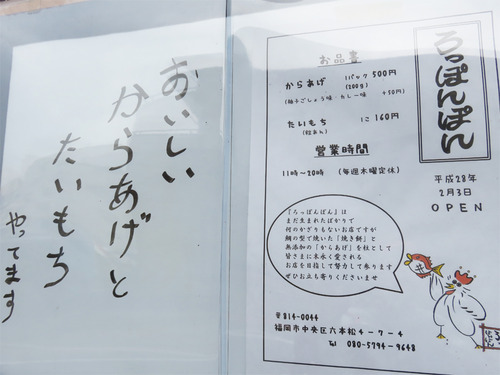 おいしい
からあげと
たいもち
やってます
ろっぽんぽん
お品書
からあげ 1パック 500円
(200g)
(柚子ごしょう味 カレー味 +50円)
たいもち 1こ 160円
(粒あん)
営業時間
11時〜20時 (毎週木曜定休)
平成28年
2月3日
OPEN
『ろっぽんぽん』は
まだ生まれたばかりで
何のかざりもないお店ですが
鯛の型で焼いた「焼き餅」と
無添加の「からあげ」を柱として
皆さまに末永く愛される
お店を目指して努力して参ります
ぜひお立ち寄りくださいませ
〒814-0044
福岡市中央区六本松4-7-4
Tel 080-5794-9648